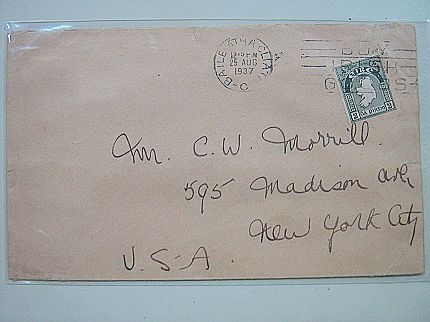 BAILE ÁTHA CLIATH
25 AUG
1937
C
BUY
IRISH
GOODS
Mr. C. W. Morrill.
595 Madison Ave,
New York City
U.S.A.